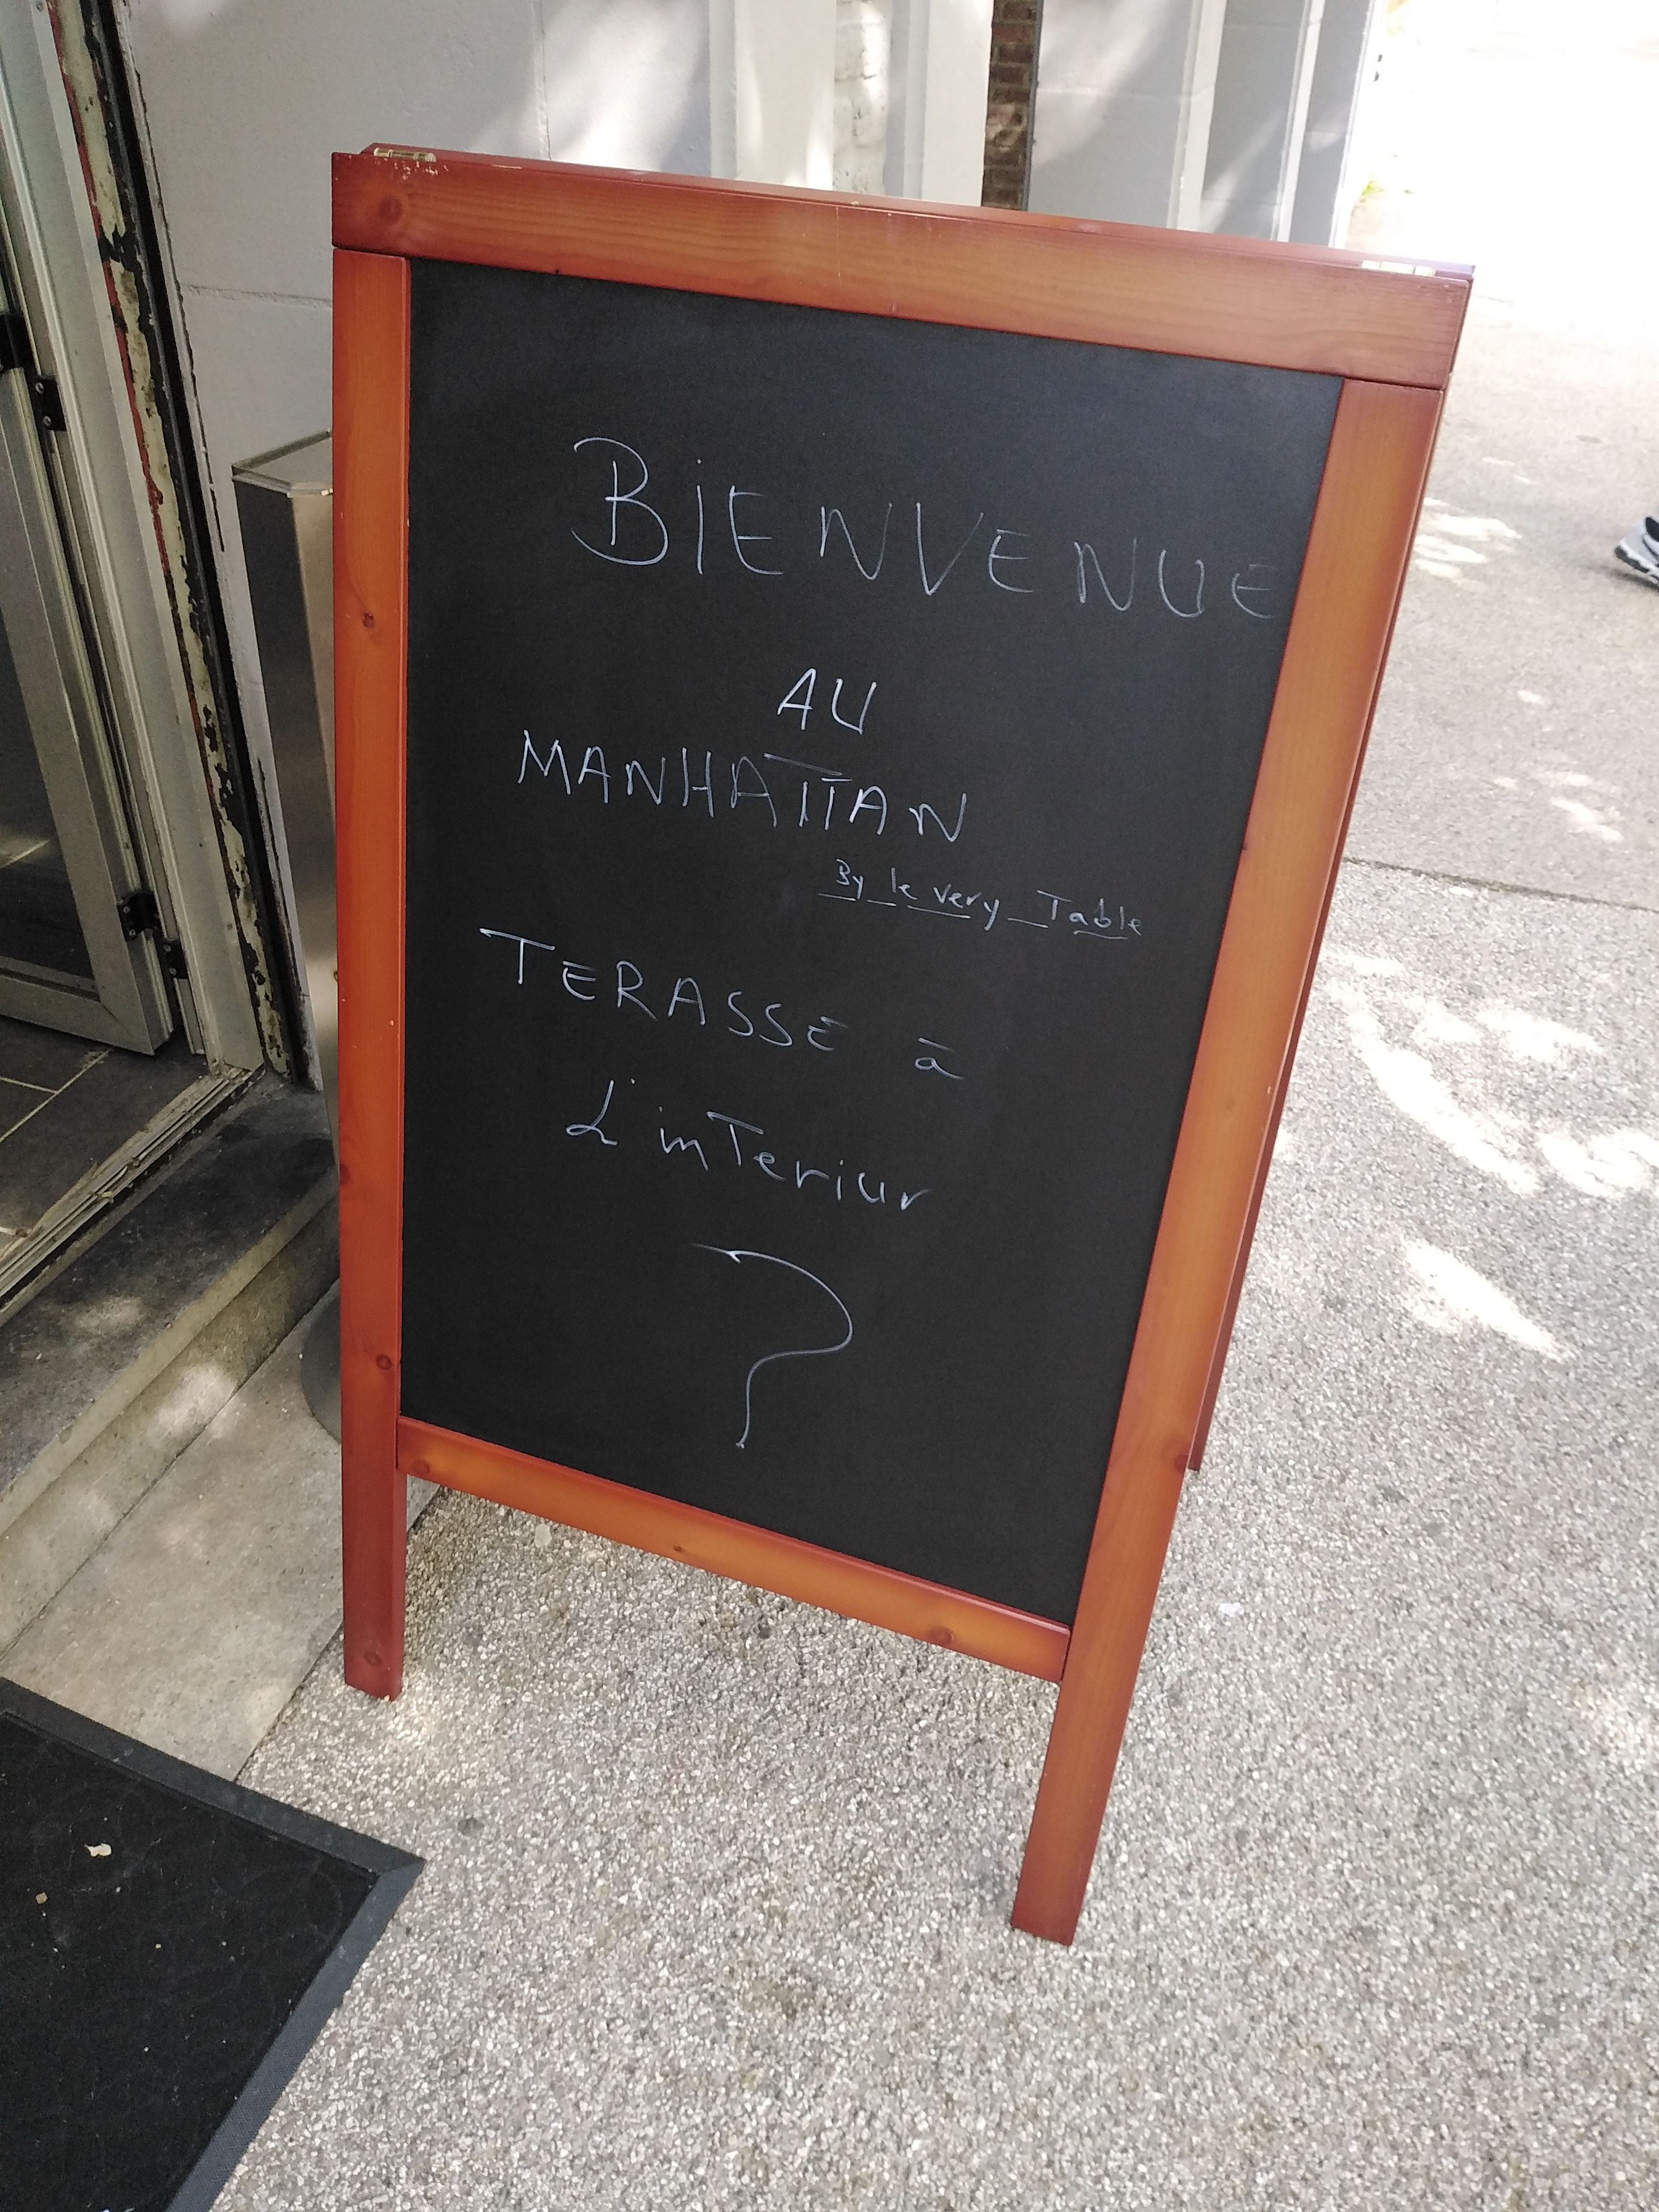 BiENVENUE
AU
MANHATTAN
By le very Table
TERASSE à
L'inTeriur
?